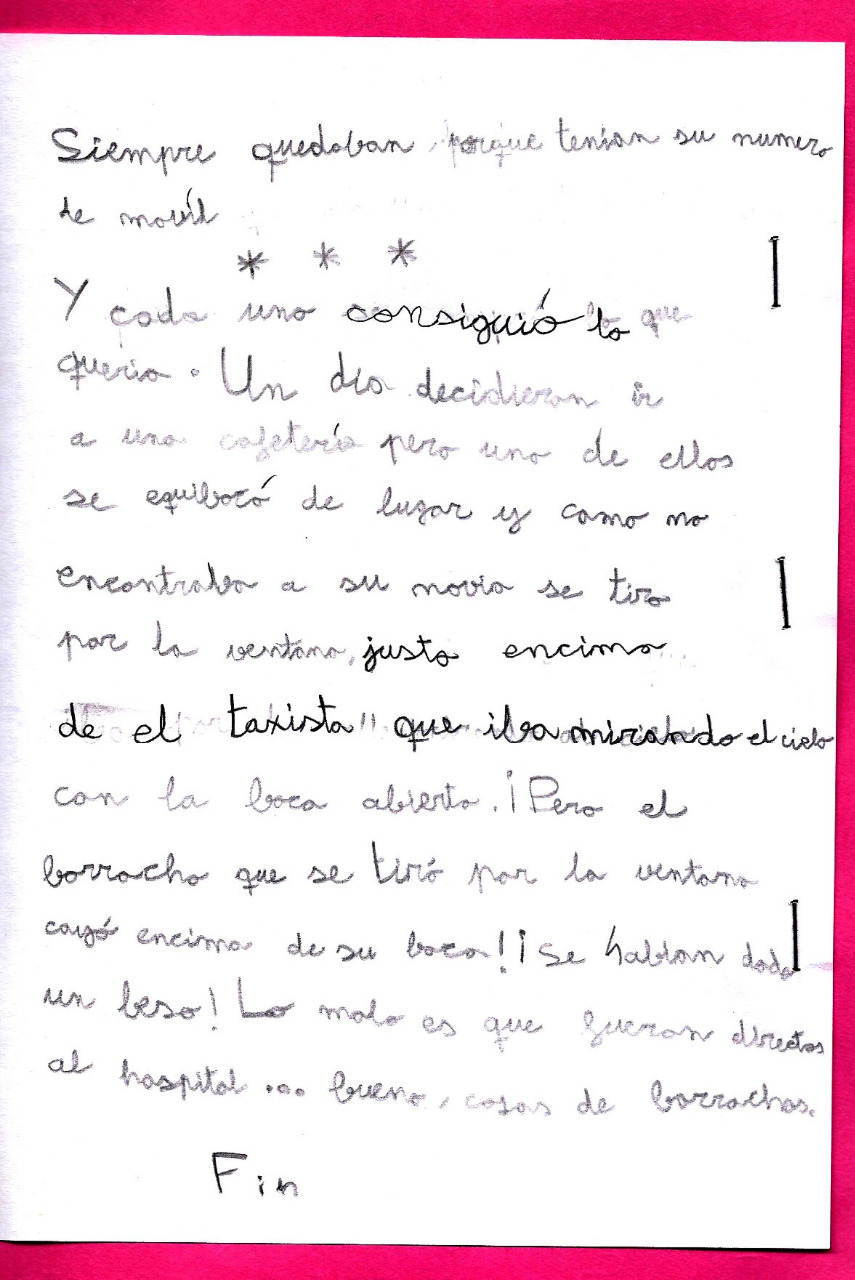 Siempre quedaban, porque tenian su numero
de movíl
* * *
Y cada uno consiguió lo que
queria. Un día decidieron ir
a una cafetería pero uno de ellos
se equibocó de lugar y como no
encontraba a su novia se tiro
por la ventana, justo encima
de el taxista que iba mirando el cielo
con la boca abierta. ¡Pero el
borracho que se tiró por la ventana
cayó encima de su boca! ¡Se habian dado
un beso! Lo malo es que fueron directos
al hospital... bueno, cosas de borrachos.
Fin